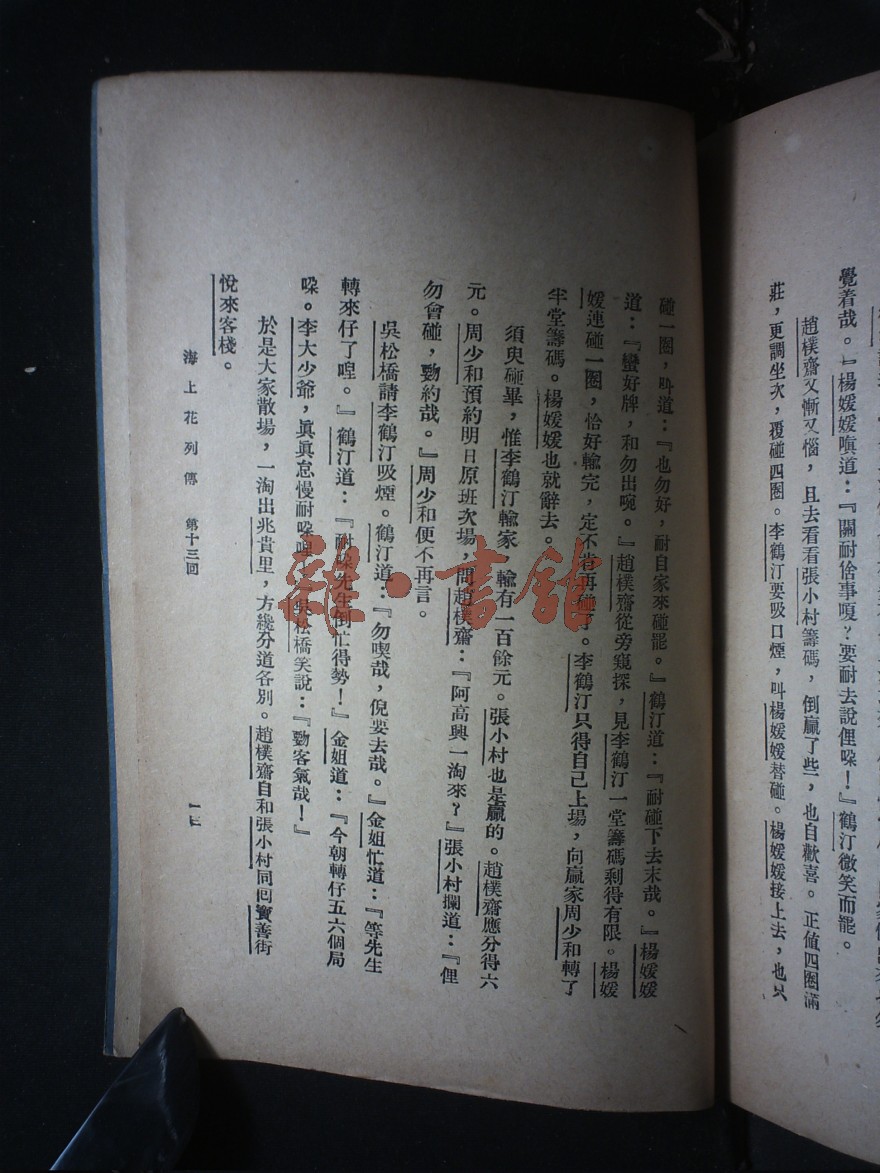 覺着哉。』楊媛媛嗔道：『關耐偺事嗄？要耐去說俚哚！』鶴汀微笑而罷。
趙樸齋又慚又惱，且去看看張小村籌碼，倒贏了些，也自歡喜。正値四圈滿
莊，更調坐次，覆碰四圈。李鶴汀要吸口煙，叫楊媛媛替碰。楊媛媛接上去，也只
碰一圈，叫道：『也勿好，耐自家來碰罷。』鶴汀道：『耐碰下去末哉。』楊媛媛
道：『蠻好牌，和勿出啘。』趙樸齋從旁窺探，見李鶴汀一堂籌碼剩得有限。楊媛
媛連碰一圈，恰好輸完，定不肯再碰了。李鶴汀只得自己上場，向贏家周少和轉了
半堂籌碼。楊媛媛也就辭去。
須臾碰畢，惟李鶴汀輸家，輸有一百餘元。張小村也是贏的。趙樸齋應分得六
元。周少和預約明日原班次場，問趙樸齋：『阿高興一淘來？』張小村攔道：『俚
勿會碰，覅約哉。』周少和便不再言。
吳松橋請李鶴汀吸煙。鶴汀道：『勿喫哉，倪要去哉。』金姐忙道：『等先生
轉來仔了啘。』鶴汀道：『耐哚先生倒忙得勢！』金姐道：『今朝轉仔五六個局
哚。李大少爺，眞眞怠慢耐哚啘。』吳松橋笑說：『覅客氣哉！』
於是大家散場，一淘出兆貴里，方纔分道各別。趙樸齋自和張小村同囘寶善街
悅來客棧。
海上花列傳　第十三囘
一二
龍·書館